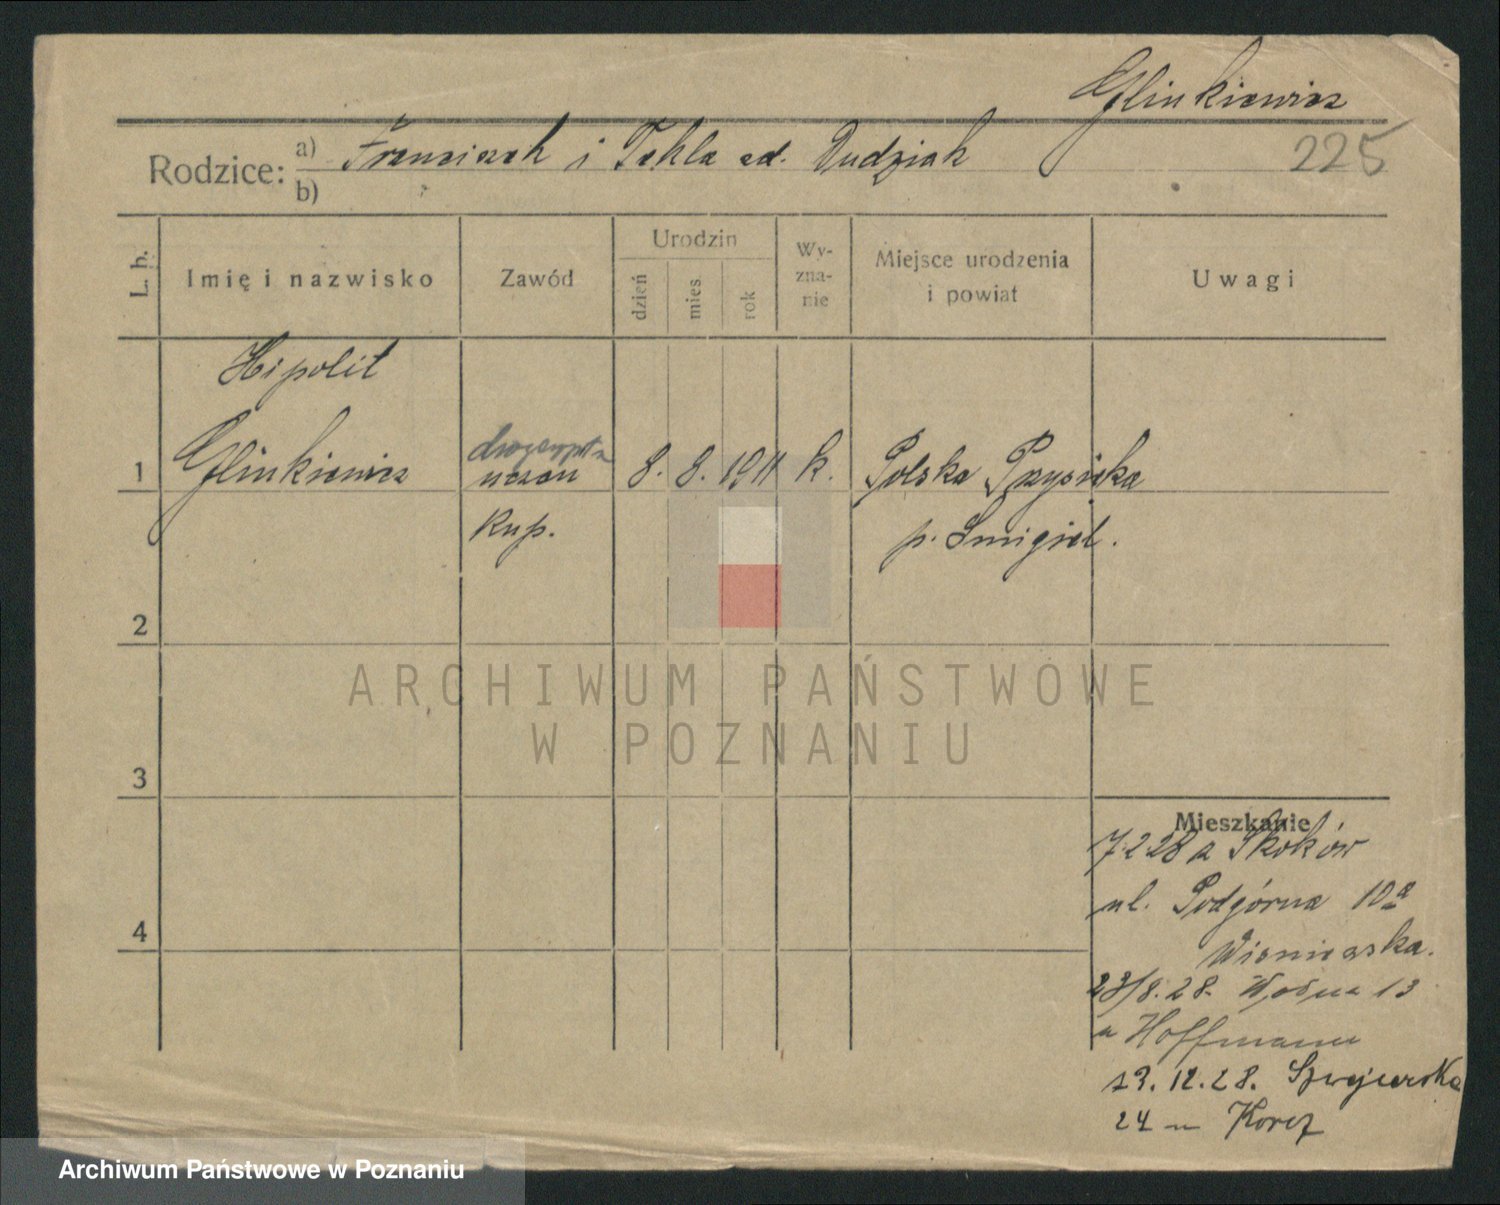 Glinkiewicz
225
Rodzice: a) Franciszek i Tekla ad. Dudziak
b)
L. b.
Imię i nazwisko
Zawód
Urodzin
dzień
mies.
rok
Wy-
zna-
nie
Miejsce urodzenia
i powiat
Uwagi
Hipolit
1 Glinkiewicz uczeń 8. 8. 1911 k. Polska Przysieka
kup. p. Śmigiel.
2
3
4
Mieszkanie
7.2.28 z Skoków
ul. Podgórna 10a
23/8.28. Woźna 13
u Hoffmann
12.28. Szwajcarska
24 u
ARCHIWUM PAŃSTWOWE
W POZNANIU
Archiwum Państwowe w Poznaniu